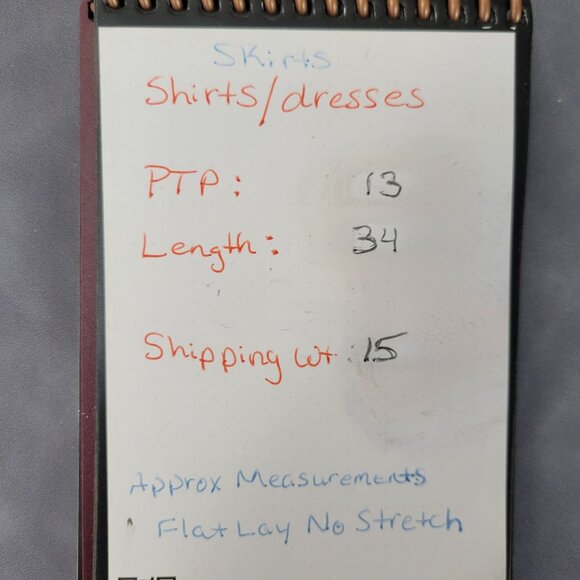 Skirts
Shirts/dresses
PTP: 13
Length: 34
Shipping Wt: 15
Approx Measurements
Flat Lay No Stretch